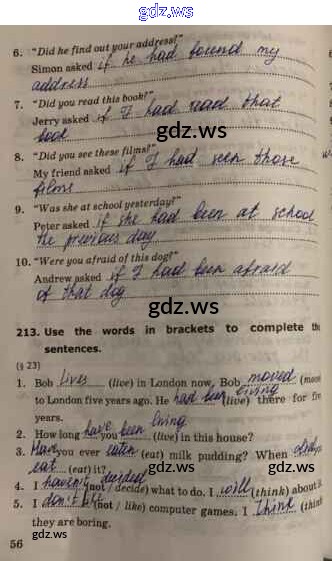 gdz.ws
6. "Did he find out your address?"
Simon asked if he had found my
address
7. "Did you read this book?"
Jerry asked if I had read that
book
gdz.ws
8. "Did you see these films?"
My friend asked if I had seen those
films
9. "Was she at school yesterday?"
Peter asked if she had been at school
the previous day
gdz.ws
10. "Were you afraid of this dog?"
Andrew asked if I had been afraid
of that dog
gdz.ws
213. Use the words in brackets to complete the
sentences.
(§ 23)
1. Bob lives (live) in London now. Bob moved (move
to London five years ago. He had been living (live) there for five
years.
2. How long have you been living (live) in this house?
3. Have you ever eaten (eat) milk pudding? When did you
eat (eat) it?
4. I haven't decided (not / decide) what to do. I will (think) about it.
5. I don't like (not / like) computer games. I think (think
they are boring.
56
gdz.ws